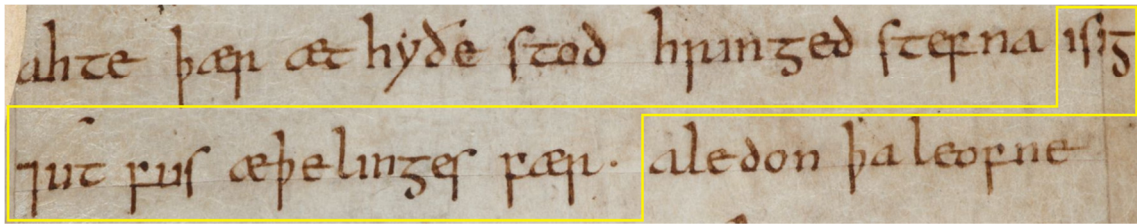 ahte þær æt hyðe stod hringed stefna isig
⁊ut fus æþelinges fær. aledon þa leofne